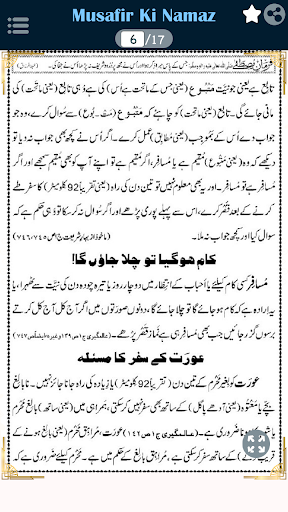 Musafir Ki Namaz
6 /17
فرمانِ مصطفےٰ جس کے پاس میرا ذکر ہوا اور اُس نے مجھ پر دُرود شریف نہ پڑھا اُس نے جفا کی۔
تابع ہے جو نیّت مَتْبُوع (یعنی جس کے ماتحت ہے اُس) کی ہے وُہی تابع (یعنی ماتحت) کی
مانی جائے گی۔ تابع (یعنی ماتحت) کو چاہئے کہ مَتْبُوع سے سُوال کرے، وہ جو
جواب دے اُس کے بَمُوجِب (یعنی مطابق) عمل کرے۔ اگر اُس نے کچھ بھی جواب نہ دیا تو
دیکھے کہ وہ (یعنی مَتْبُوع) مُقیم ہے یا مسافر، اگر مُقیم ہے تو اپنے آپ کو بھی مُقیم سمجھے اور اگر
مسافر ہے تو مسافر۔ اور یہ بھی معلوم نہیں تو تین دن کی راہ (یعنی تقریباً 92 کلومیٹر) کا سفر طے
کرنے کے بعد قَصْر کرے، اس سے پہلے پوری پڑھے اور اگر سُوال نہ کر سکا تو وُہی حکم ہے کہ
سُوال کیا اور کچھ جواب نہ ملا۔ (ماخوذ از بہارِ شریعت ج۱ ص ۷۴۵،۷۴۶)
کام ہو گیا تو چلا جاؤں گا!
مُسافِر کسی کام کیلئے یا اَحباب کے انتظار میں دو چار روز یا تیرہ چودہ دن کی نیّت سے ٹھہرا، یا
یہ ارادہ ہے کہ کام ہو جائے گا تو چلا جائے گا، دونوں صورتوں میں اگر آج کل آج کل کرتے
برسوں گزر جائیں جب بھی مسافر ہی ہے، نَماز قَصْر پڑھے۔
عورت کے سفر کا مسئلہ
عورت کو بغیر مَحْرَم کے تین دن (تقریباً 92 کلومیٹر) یا زیادہ کی راہ جانا جائز نہیں۔ نابالغ
بچّے یا مَعْتُوہ (یعنی آدھے پاگل) کے ساتھ بھی سفر نہیں کر سکتی، ہمراہی میں بالغ مَحْرَم
یا شوہر کا ہونا ضَروری ہے۔ (عالمگیری ج۱ ص ۱۴۲) عورت، مُراہِق مَحْرَم (یعنی بالغ ہونے کے
قریب لڑکے) کے ساتھ سفر کر سکتی ہے، مُراہِق بالغ کے حکم میں ہے۔ مَحْرَم کیلئے ضَروری ہے کہ